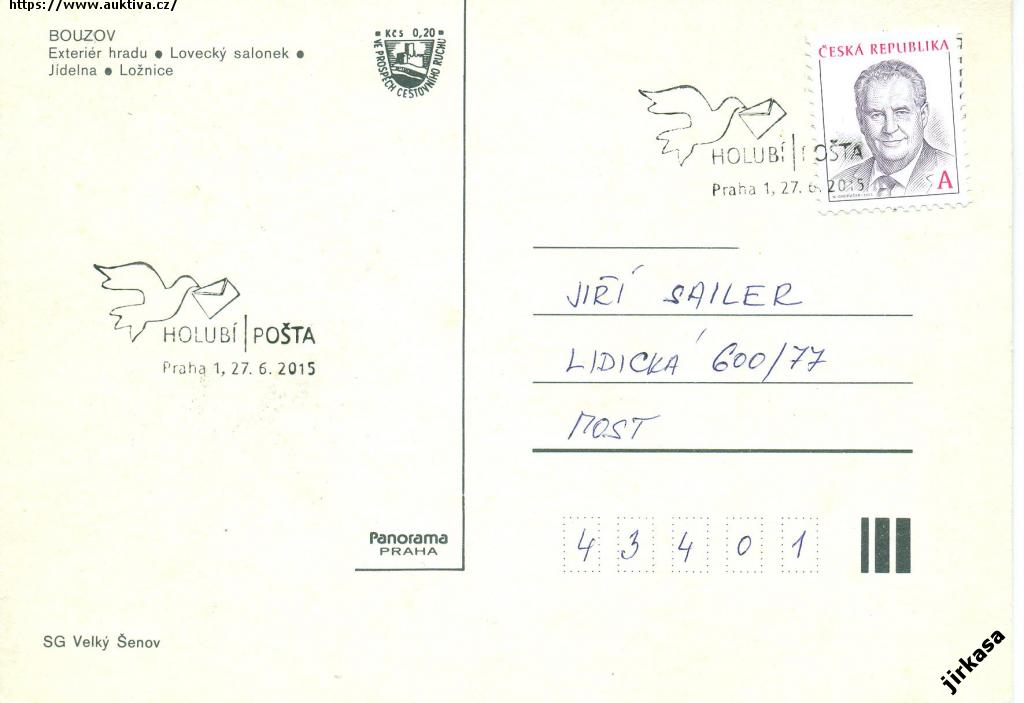 https://www.auktiva.cz/
BOUZOV
Exteriér hradu ● Lovecký salonek ●
Jídelna ● Ložnice
Kčs 0,20
VE PROSPĚCH CESTOVNÍHO RUCHU
ČESKÁ REPUBLIKA
A
HOLUBÍ POŠTA
Praha 1, 27. 6. 2015
HOLUBÍ POŠTA
Praha 1, 27. 6. 2015
JIŘÍ SAILER
LIDICKÁ 600/77
MOST
43401
Panorama
PRAHA
SG Velký Šenov
jirkasa